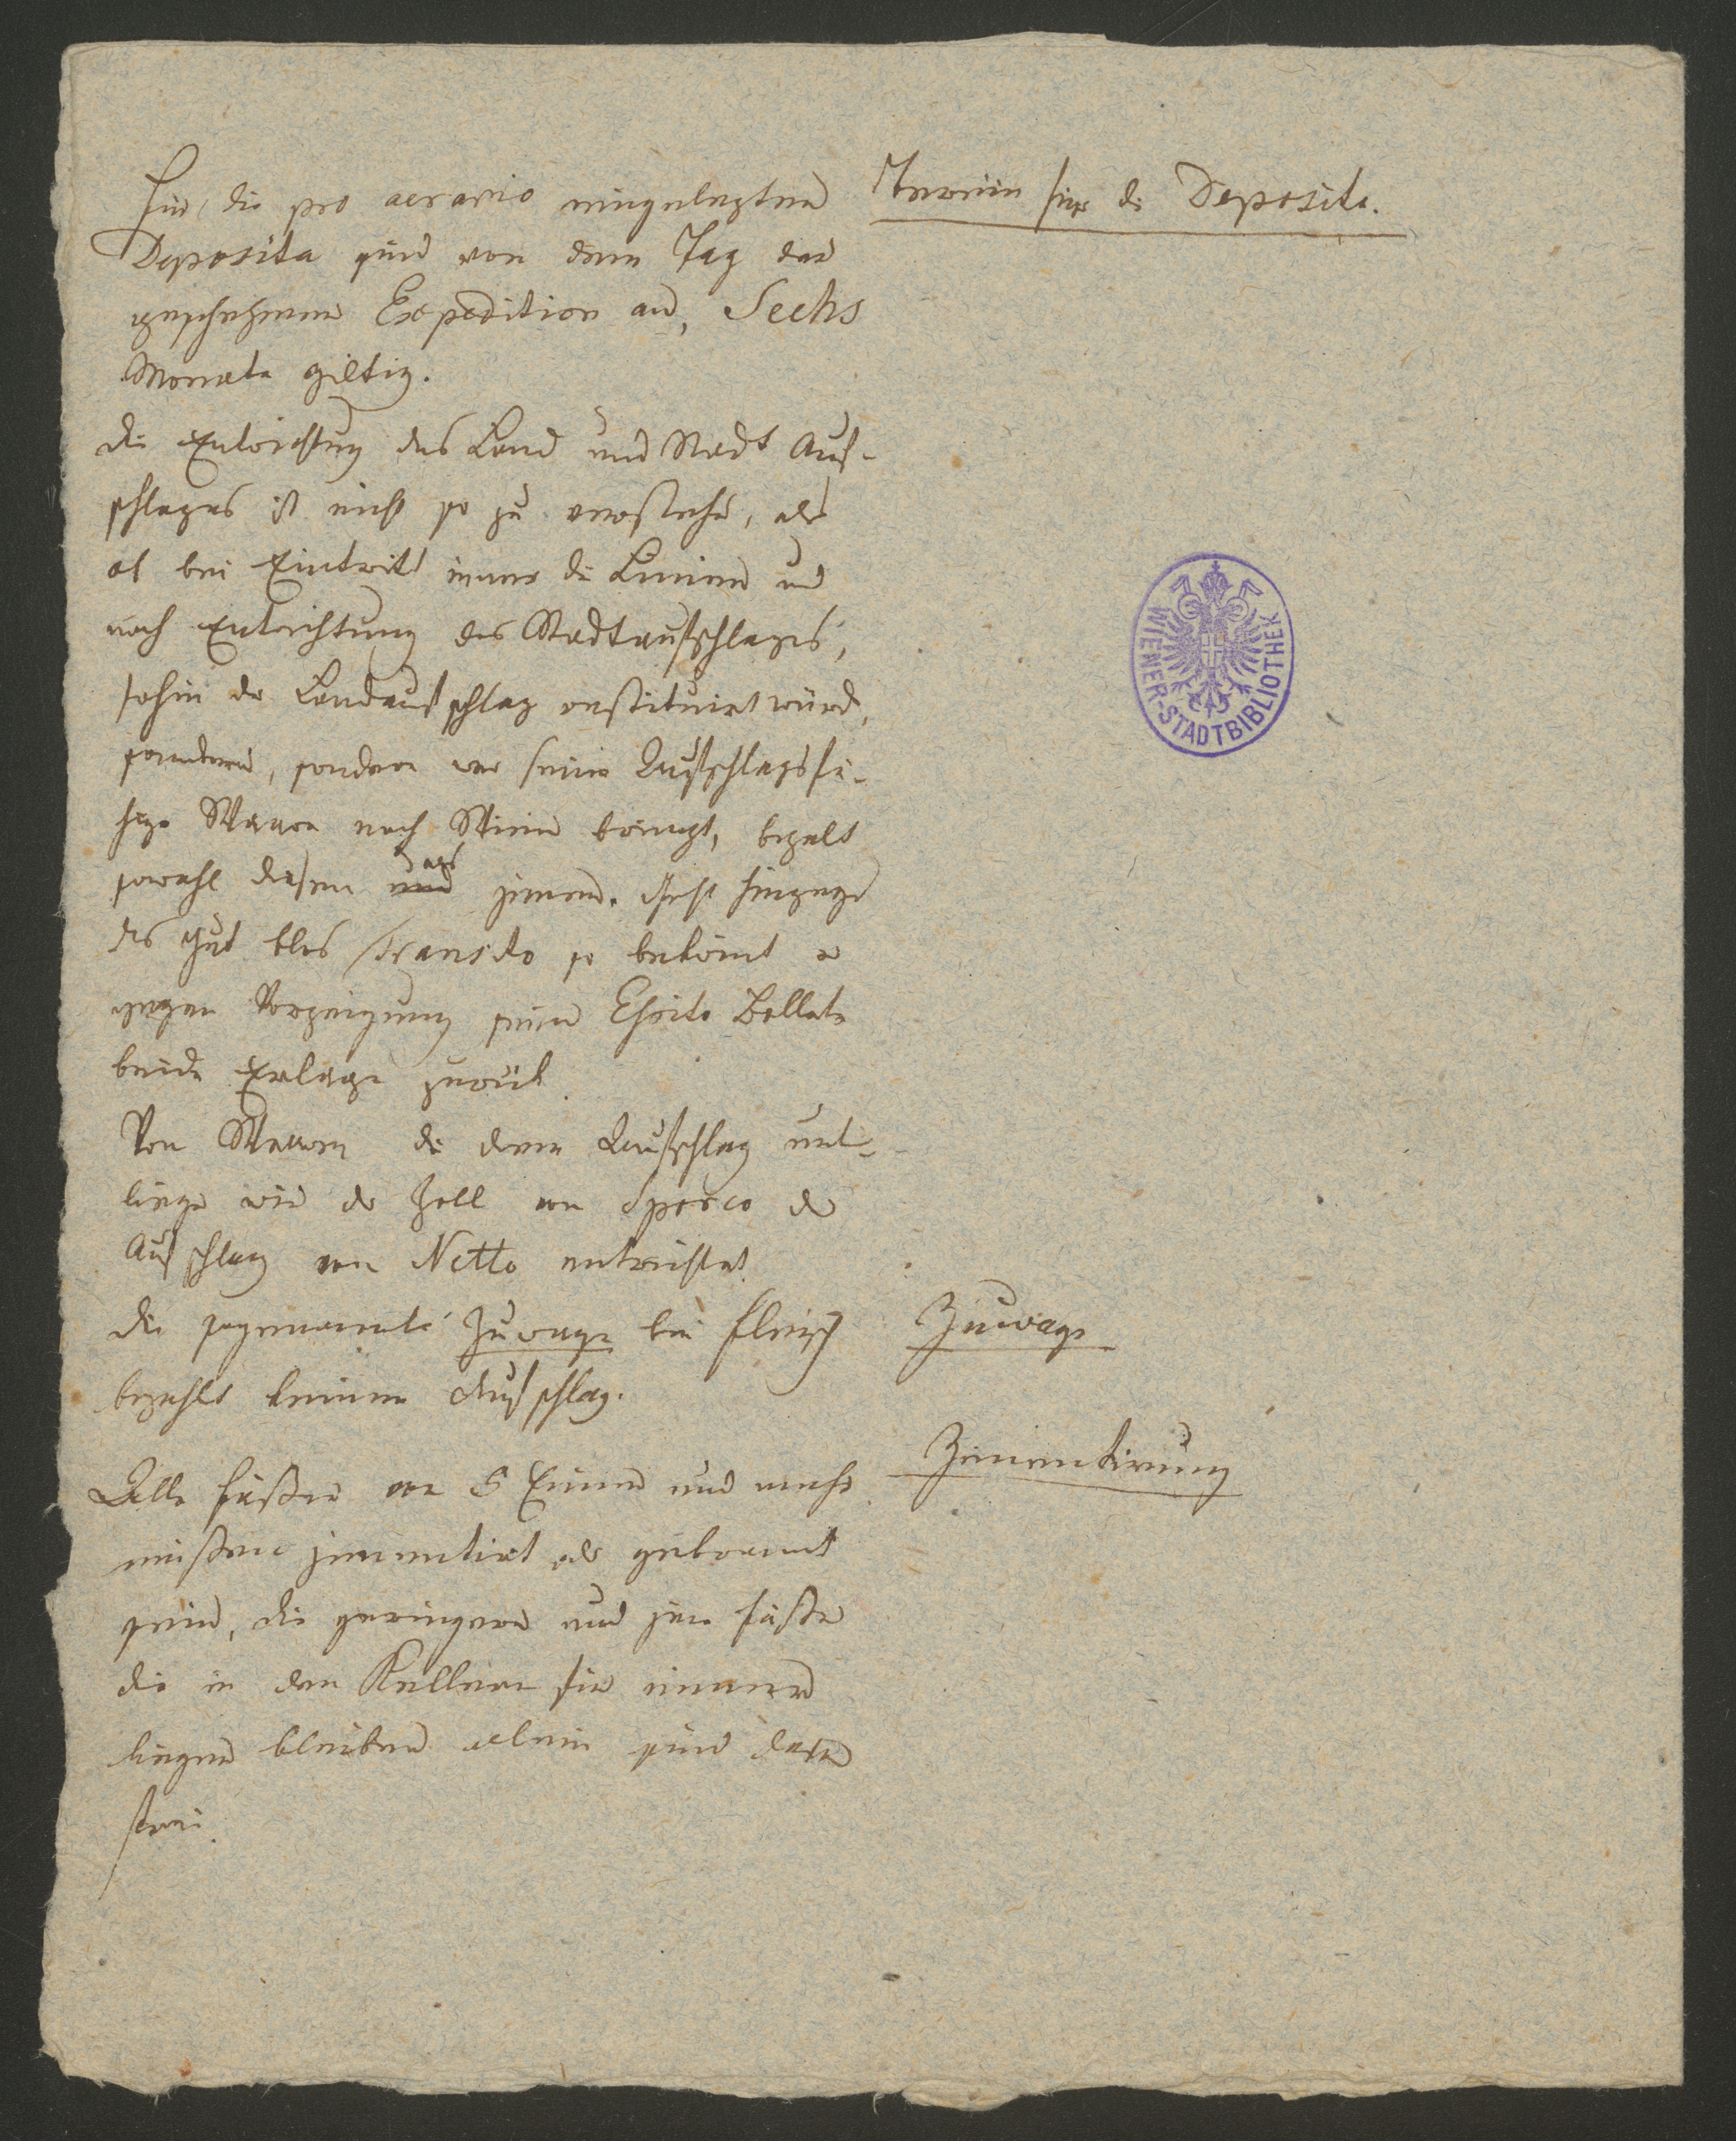 Für die pro aerario eingelegten
Deposita sind von dem Tag der
geschehenen Expedition an, Sechs
Monate giltig.
Termin für die Deposita.
die Entrichtung des Land und Stadt Auf-
schlages ist nicht so zu verstehen, als
ob bei Eintritt inner die Linien und
nach Entrichtung des Stadtaufschlages,
sohin der Landaufschlag restituirt würde,
sondern, sondern wer seine Aufschlagsfä-
hige Waare nach Wien bringt, bezalt
sowohl diesen und als jenen. Geht hingegen
das Gut blos Transito so bekömt er
gegen Vorzeigung seiner Essito Bollete
beide Erläge zurük.
Von Waaren die dem Aufschlag unt-
liegen wird der Zoll von Sporco der
Aufschlag von Netto entrichtet.
die sogenannte Zuwage bei Fleisch
bezahlt keinen Aufschlag.
Zuwage
Alle Fässer von 5 Eimer und mehr
müssen zimentirt oder gebrannt
sein, die geringeren und jene Fässer
die in den Kellern für immer
liegen bleiben allein sind davon
frei.
Zimentirung
WIENER-STADTBIBLIOTHEK